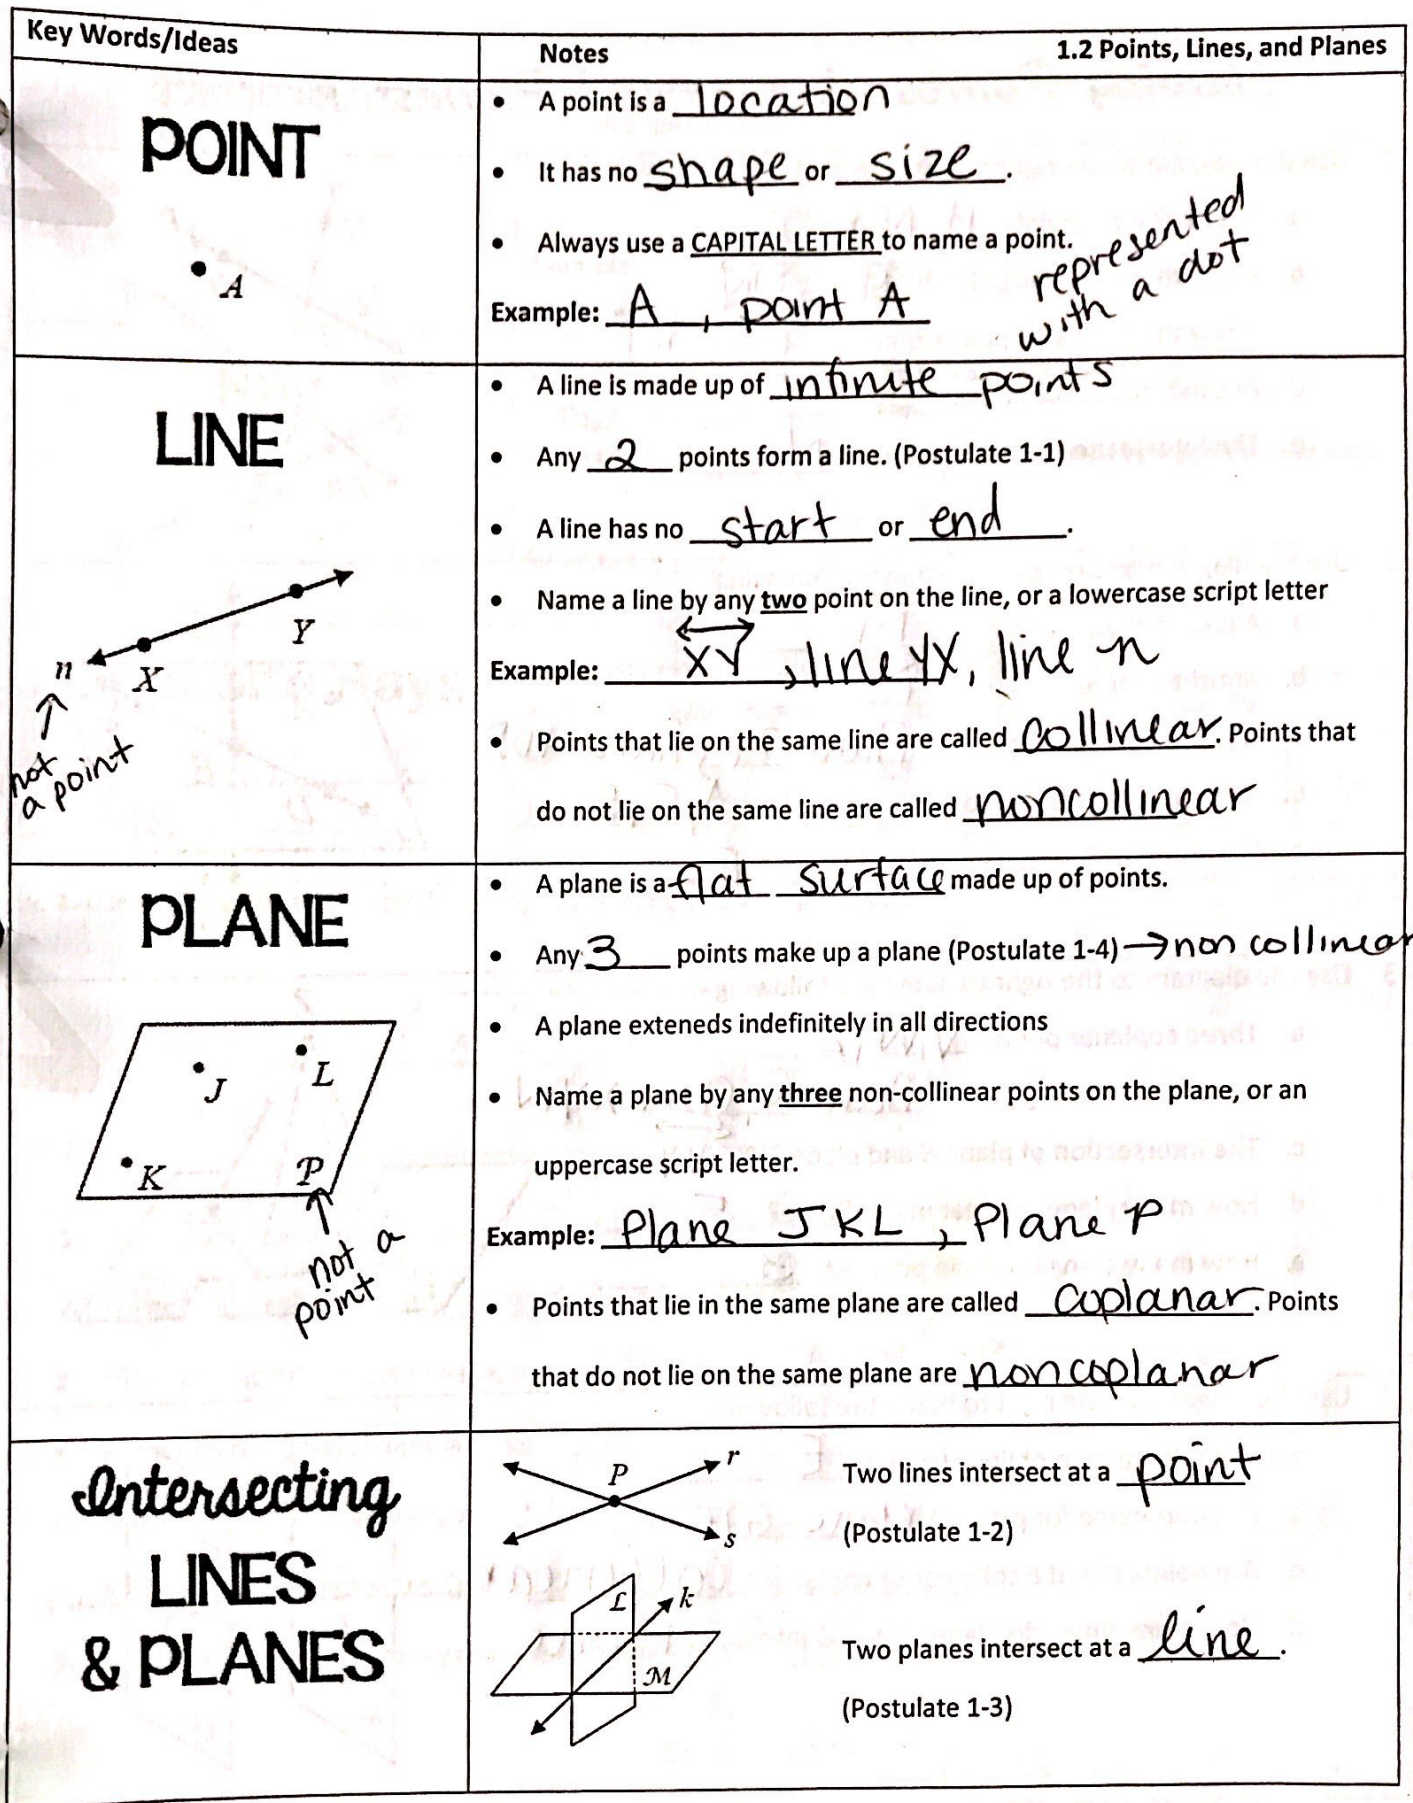 Key Words/Ideas
Notes 1.2 Points, Lines, and Planes
POINT
A
• A point is a location
• It has no shape or size.
• Always use a CAPITAL LETTER to name a point.
represented
with a dot
Example: A, point A
LINE
n
X
Y
not
a point
• A line is made up of infinite points
• Any 2 points form a line. (Postulate 1-1)
• A line has no start or end.
• Name a line by any two point on the line, or a lowercase script letter
Example: XY, line YX, line n
• Points that lie on the same line are called collinear. Points that
do not lie on the same line are called noncollinear
PLANE
J
L
K
P
not a
point
• A plane is a flat surface made up of points.
• Any 3 points make up a plane (Postulate 1-4) → non collinear
• A plane exteneds indefinitely in all directions
• Name a plane by any three non-collinear points on the plane, or an
uppercase script letter.
Example: Plane JKL, Plane P
• Points that lie in the same plane are called coplanar. Points
that do not lie on the same plane are noncoplanar
Intersecting
LINES
& PLANES
P
r
s
Two lines intersect at a point
(Postulate 1-2)
L
k
M
Two planes intersect at a line.
(Postulate 1-3)